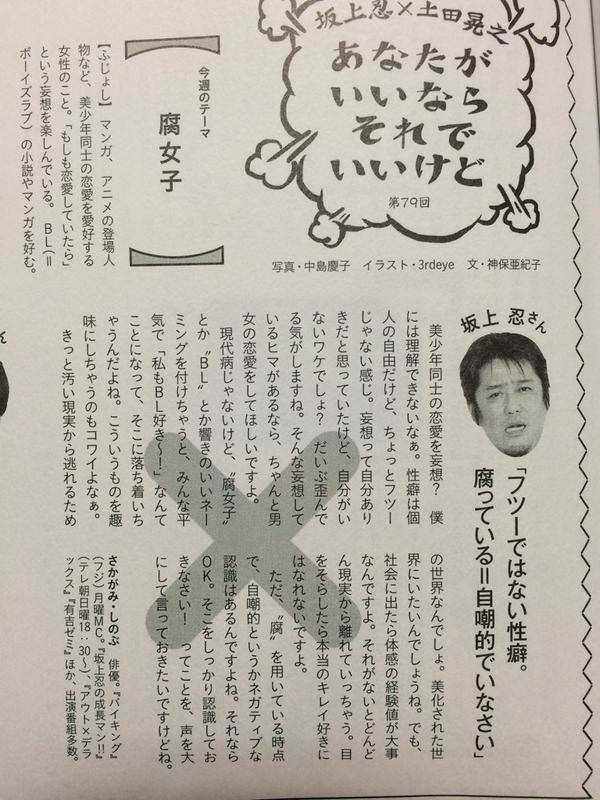 坂上忍×土田晃之
あなたが
いいなら
それで
いいけど
第79回
写真・中島慶子 イラスト・3rdeye 文・神保亜紀子
今週のテーマ
腐女子
【ふじょし】マンガ、アニメの登場人
物など、美少年同士の恋愛を愛好する
女性のこと。「もしも恋愛していたら」
という妄想を楽しんでいる。BL(=
ボーイズラブ)の小説やマンガを好む。
坂上 忍さん
「フツーではない性癖。
腐っている=自嘲的でいなさい」
美少年同士の恋愛を妄想? 僕
には理解できないなぁ。性癖は個
人の自由だけど、ちょっとフツー
じゃない感じ。妄想って自分あり
きだと思っていたけど、自分がい
ないワケでしょ? だいぶ歪んで
る気がしますね。そんな妄想して
いるヒマがあるなら、ちゃんと男
女の恋愛をしてほしいですよ。
現代病じゃないけど、〝腐女子〟
とか〝BL〟とか響きのいいネー
ミングを付けちゃうと、みんな平
気で「私もBL好き〜!」なんて
ことになって、そこに落ち着いち
ゃうんだよね。こういうものを趣
味にしちゃうのもコワイよなぁ。
きっと汚い現実から逃れるため
の世界なんでしょ。美化された世
界にいたいんでしょうね。でも、
社会に出たら体感の経験値が大事
なんですよ。それがないとどんど
ん現実から離れていっちゃう。目
をそらしたら本当のキレイ好きに
はなれないですよ。
ただ、〝腐〟を用いている時点
で、自嘲的というかネガティブな
認識はあるんですよね。それなら
OK。そこをしっかり認識してお
きなさい! ってことを、声を大
にして言っておきたいですけどね。
さかがみ・しのぶ 俳優。『バイキング』
(フジ)月曜MC。『坂上忍の成長マン!!』
(テレ朝日曜18:30〜)、『アウト×デラ
ックス』『有吉ゼミ』ほか、出演番組多数。